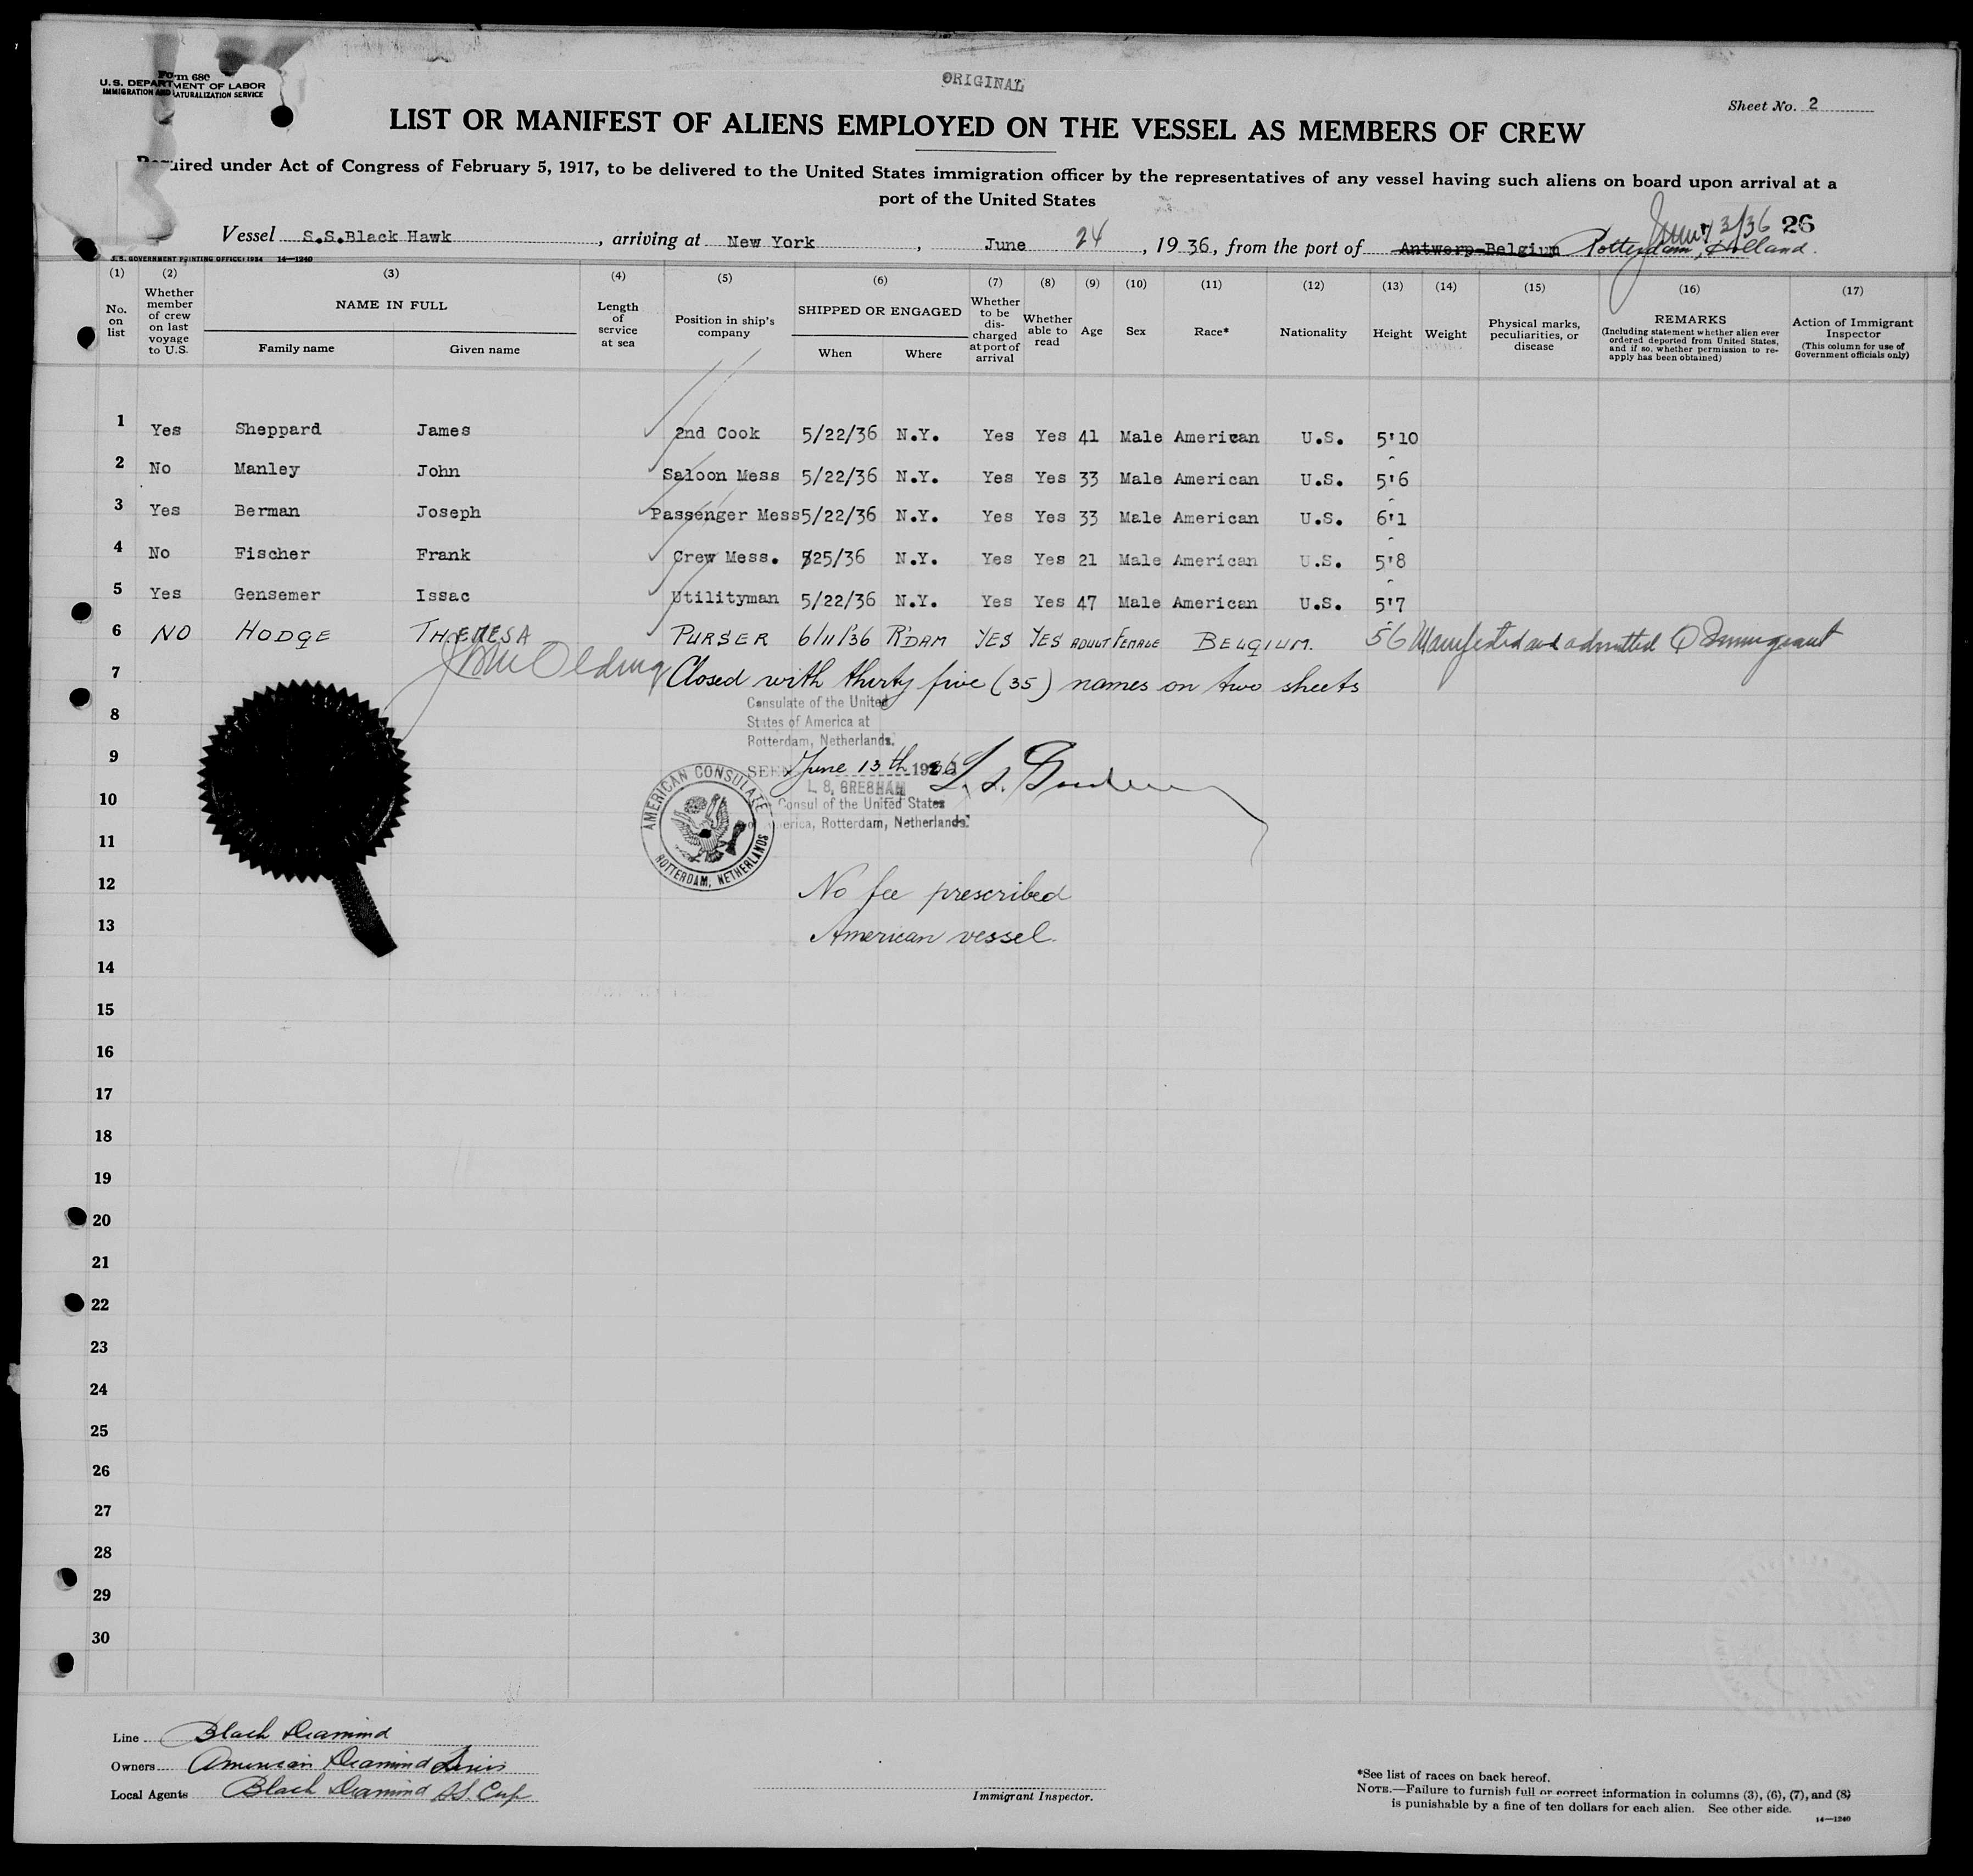 Form 680
U. S. DEPARTMENT OF LABOR
IMMIGRATION AND NATURALIZATION SERVICE
ORIGINAL
Sheet No. 2
LIST OR MANIFEST OF ALIENS EMPLOYED ON THE VESSEL AS MEMBERS OF CREW
Required under Act of Congress of February 5, 1917, to be delivered to the United States immigration officer by the representatives of any vessel having such aliens on board upon arrival at a
port of the United States
26
Vessel S.S.Black Hawk, arriving at New York, June 24, 1936, from the port of Antwerp-Belgium Rotterdam, Holland.
U. S. GOVERNMENT PRINTING OFFICE: 1934 14—1240
(1) (2) (3) (4) (5) (6) (7) (8) (9) (10) (11) (12) (13) (14) (15) (16) (17)
No. on list
Whether member of crew on last voyage to U.S.
NAME IN FULL
Family name
Given name
Length of service at sea
Position in ship's company
SHIPPED OR ENGAGED
When
Where
Whether to be discharged at port of arrival
Whether able to read
Age
Sex
Race*
Nationality
Height
Weight
Physical marks, peculiarities, or disease
REMARKS
(Including statement whether alien ever ordered deported from United States, and if so, whether permission to re-apply has been obtained)
Action of Immigrant Inspector
(This column for use of Government officials only)
1 Yes Sheppard James 2nd Cook 5/22/36 N.Y. Yes Yes 41 Male American U.S. 5'10
2 No Manley John Saloon Mess 5/22/36 N.Y. Yes Yes 33 Male American U.S. 5'6
3 Yes Berman Joseph Passenger Mess 5/22/36 N.Y. Yes Yes 33 Male American U.S. 6'1
4 No Fischer Frank Crew Mess. 525/36 N.Y. Yes Yes 21 Male American U.S. 5'8
5 Yes Gensemer Issac Utilityman 5/22/36 N.Y. Yes Yes 47 Male American U.S. 5'7
6 NO HODGE THERESA PURSER 6/11/36 R'DAM YES YES ADULT FEMALE BELGIUM. 5'6 Manifested and admitted Immigrant
7 Closed with thirty five (35) names on two sheets
Consulate of the United
States of America at
8
Rotterdam, Netherlands.
9 SEEN June 13th 1936
L. S. GRESHAM
10 Consul of the United States
of America, Rotterdam, Netherlands.
AMERICAN CONSULATE
ROTTERDAM, NETHERLANDS
11
12 No fee prescribed
13 American vessel.
14
15
16
17
18
19
20
21
22
23
24
25
26
27
28
29
30
Line Black Diamond
Owners American Diamond Lines
Local Agents Black Diamond SS. Corp
Immigrant Inspector.
*See list of races on back hereof.
NOTE.—Failure to furnish full or correct information in columns (3), (6), (7), and (8)
is punishable by a fine of ten dollars for each alien. See other side.
14—1240